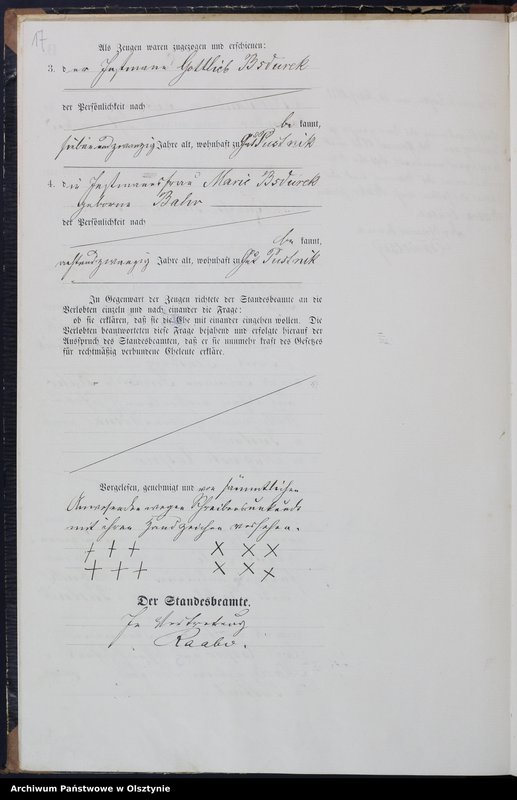 17
Als Zeugen waren zugezogen und erschienen:
3. der Instmann Gottlieb Bsdurek
der Persönlichkeit nach
be kannt,
sieben und zwanzig Jahre alt, wohnhaft zu Gut Pustnik
4. die Instmannsfrau Marie Bsdurek
geborne Bahr
der Persönlichkeit nach
be kannt,
Jahre alt, wohnhaft zu Gut Pustnik
In Gegenwart der Zeugen richtete der Standesbeamte an die
Verlobten einzeln und nach einander die Frage:
ob sie erklären, daß sie die Ehe mit einander eingehen wollen. Die
Verlobten beantworteten diese Frage bejahend und erfolgte hierauf der
Ausspruch des Standesbeamten, daß er sie nunmehr kraft des Gesetzes
für rechtmäßig verbundene Eheleute erkläre.
Vorgelesen, genehmigt und von sämmtlichen
Anwesenden wegen Schreibensunkunde
mit ihren Handzeichen versehen.
+ + + × × ×
+ + + × × ×
Der Standesbeamte.
In Vertretung
Raabe.
Archiwum Państwowe w Olsztynie